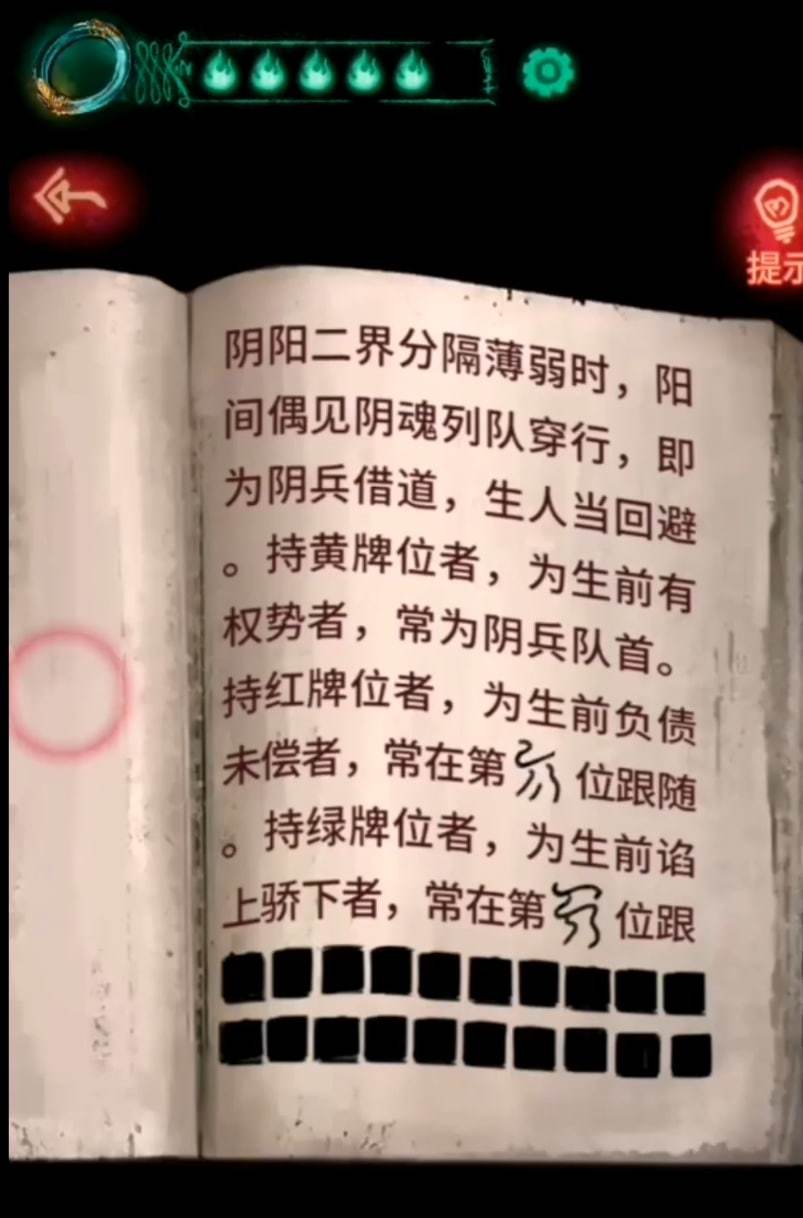 提示
阴阳二界分隔薄弱时，阳
间偶见阴魂列队穿行，即
为阴兵借道，生人当回避
。持黄牌位者，为生前有
权势者，常为阴兵队首。
持红牌位者，为生前负债
未偿者，常在第 位跟随
。持绿牌位者，为生前谄
上骄下者，常在第 位跟